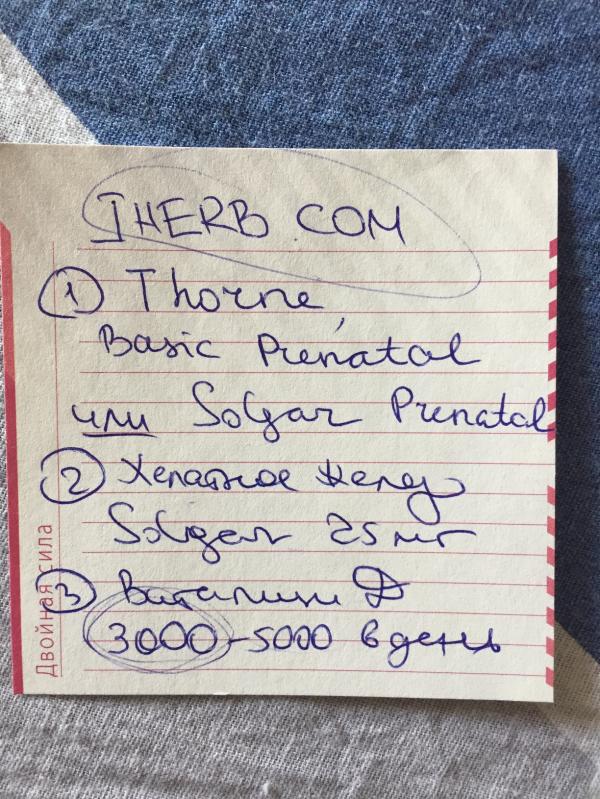 IHERB COM
1 Thorne,
Basic Prenatal
или Solgar Prenatal
2 Хелатное железо
Solgar 25 мг
3 Витамин Д
3000-5000 в день
Двойная сила